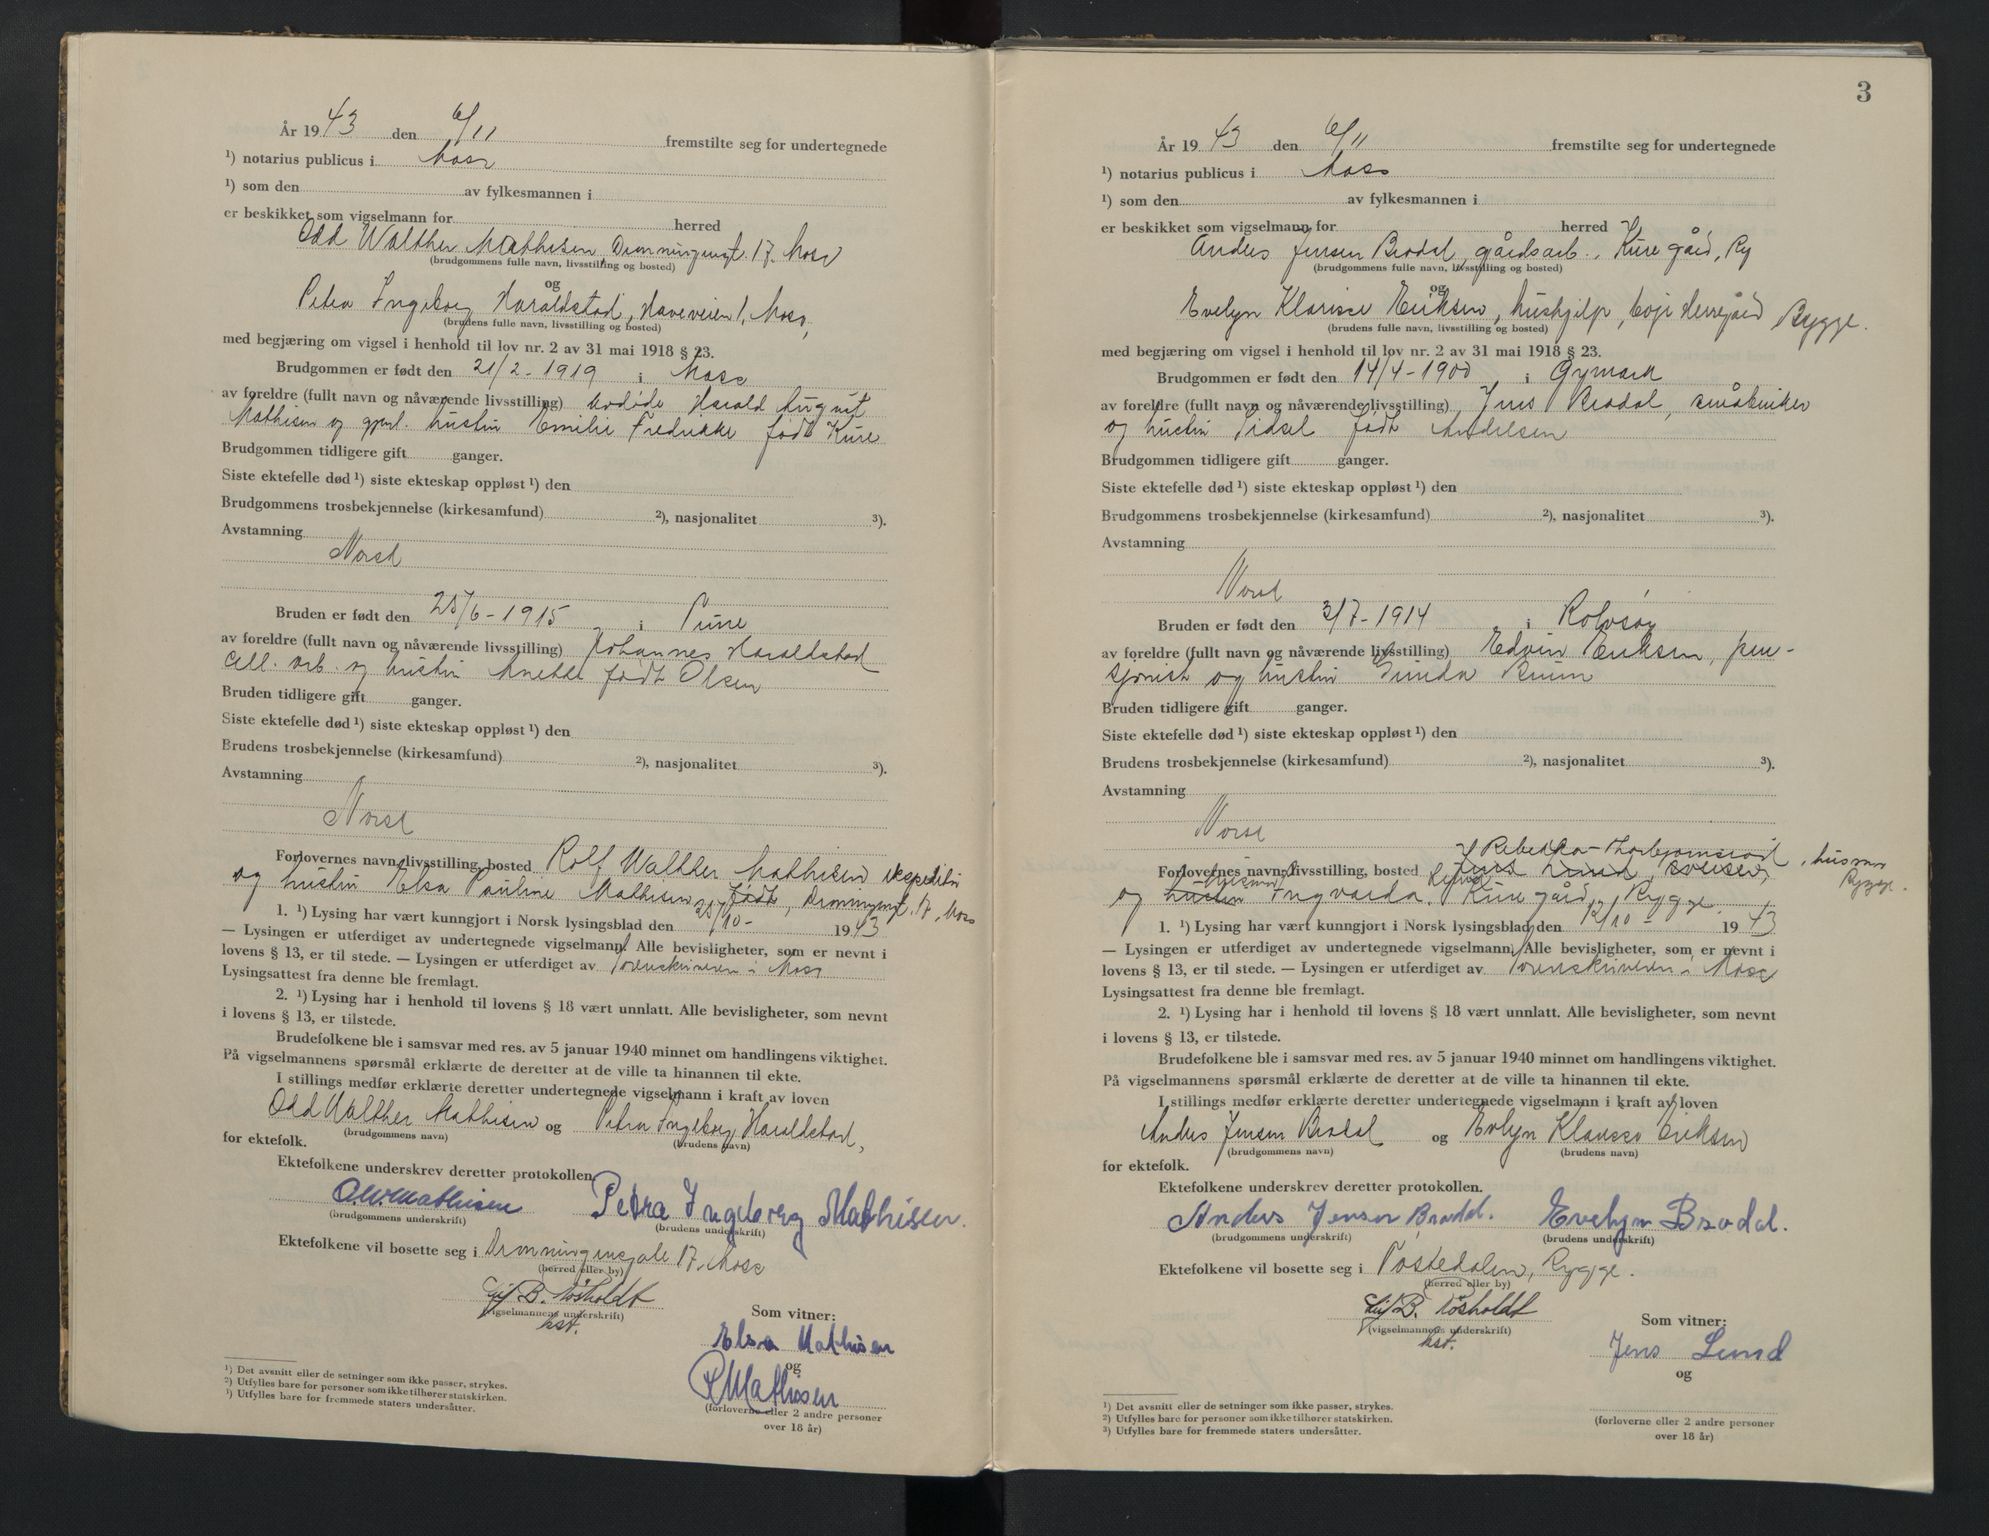 År 1943 den 6/11 fremstilte seg for undertegnede
¹) notarius publicus i Moss
¹) som den av fylkesmannen i
er beskikket som vigselmann for herred
Odd Walther Mathisen, Dronningensgt. 17, Moss
(brudgommens fulle navn, livsstilling og bosted)
og
Petra Ingeborg Haraldstad, Haveveien 1, Moss,
(brudens fulle navn, livsstilling og bosted)
med begjæring om vigsel i henhold til lov nr. 2 av 31 mai 1918 § 23.
Brudgommen er født den 21/2-1919 i Moss
av foreldre (fullt navn og nåværende livsstilling) Harald August
Mathisen og hustru Emilie Fredrikke født Kure
Brudgommen tidligere gift ganger.
Siste ektefelle død ¹) siste ekteskap oppløst ¹) den
Brudgommens trosbekjennelse (kirkesamfund) ²), nasjonalitet ³).
Avstamning
Norsk
Bruden er født den 25/6-1915 i Tune
av foreldre (fullt navn og nåværende livsstilling) Johannes Haraldstad
cell. arb. og hustru Anette født Olsen
Bruden tidligere gift ganger.
Siste ektefelle død ¹) siste ekteskap oppløst ¹) den
Brudens trosbekjennelse (kirkesamfund) ²), nasjonalitet ³).
Avstamning
Norsk
Forlovernes navn, livsstilling, bosted Rolf Walther Mathisen ekspeditør
og hustru Elsa Pauline Mathisen født, Dronningensgt. 17, Moss
1. ¹) Lysing har vært kunngjort i Norsk lysingsblad den 25/10- 1943
— Lysingen er utferdiget av undertegnede vigselmann. Alle bevisligheter, som er nevnt i
lovens § 13, er til stede. — Lysingen er utferdiget av Sorenskriveren i Moss
Lysingsattest fra denne ble fremlagt.
2. ¹) Lysing har i henhold til lovens § 18 vært unnlatt. Alle bevisligheter, som nevnt
i lovens § 13, er tilstede.
Brudefolkene ble i samsvar med res. av 5 januar 1940 minnet om handlingens viktighet.
På vigselmannens spørsmål erklærte de deretter at de ville ta hinannen til ekte.
I stillings medfør erklærte deretter undertegnede vigselmann i kraft av loven
Odd Walther Mathisen og Petra Ingeborg Haraldstad,
(brudgommens navn) (brudens navn)
for ektefolk.
Ektefolkene underskrev deretter protokollen.
O.W. Mathisen Petra Ingeborg Mathisen.
(brudgommens underskrift) (brudens underskrift)
Ektefolkene vil bosette seg i Dronningensgate 17, Moss
(herred eller by)
Leif B. Løsholdt
(vigselmannens underskrift)
kst.
Som vitner:
Elsa Mathisen
og
R Mathisen
(forloverne eller 2 andre personer
over 18 år)
¹) Det avsnitt eller de setninger som ikke passer, strykes.
²) Utfylles bare for personer som ikke tilhører statskirken.
³) Utfylles bare for fremmede staters undersåtter.
3
År 1943 den 6/11 fremstilte seg for undertegnede
¹) notarius publicus i Moss
¹) som den av fylkesmannen i
er beskikket som vigselmann for herred
Anders Jensen Brodal, gårdsarb., Kure gård, Ry
(brudgommens fulle navn, livsstilling og bosted)
og
Evelyn Klarisse Eriksen, hushjelp, Evje Herregård Rygge.
(brudens fulle navn, livsstilling og bosted)
med begjæring om vigsel i henhold til lov nr. 2 av 31 mai 1918 § 23.
Brudgommen er født den 14/4-1900 i Gymark
av foreldre (fullt navn og nåværende livsstilling) Jens Brodal, småbruker
og hustru Sidsel født Andersen
Brudgommen tidligere gift ganger.
Siste ektefelle død ¹) siste ekteskap oppløst ¹) den
Brudgommens trosbekjennelse (kirkesamfund) ²), nasjonalitet ³).
Avstamning
Norsk
Bruden er født den 3/7-1914 i Rolvsøy
av foreldre (fullt navn og nåværende livsstilling) Edvin Eriksen, pen-
sjonist og hustru Gunda Buum
Bruden tidligere gift ganger.
Siste ektefelle død ¹) siste ekteskap oppløst ¹) den
Brudens trosbekjennelse (kirkesamfund) ²), nasjonalitet ³).
Avstamning
Norsk
Rebekka Thorbjørnsrød, husmor Rygge.
Forlovernes navn, livsstilling, bosted Jens Lund, sveiser,
og hustru Ingvarda, Kure gård, Rygge.
1. ¹) Lysing har vært kunngjort i Norsk lysingsblad den 12/10- 1943
— Lysingen er utferdiget av undertegnede vigselmann. Alle bevisligheter, som er nevnt i
lovens § 13, er til stede. — Lysingen er utferdiget av Sorenskriveren i Moss
Lysingsattest fra denne ble fremlagt.
2. ¹) Lysing har i henhold til lovens § 18 vært unnlatt. Alle bevisligheter, som nevnt
i lovens § 13, er tilstede.
Brudefolkene ble i samsvar med res. av 5 januar 1940 minnet om handlingens viktighet.
På vigselmannens spørsmål erklærte de deretter at de ville ta hinannen til ekte.
I stillings medfør erklærte deretter undertegnede vigselmann i kraft av loven
Anders Jensen Brodal og Evelyn Klarisse Eriksen
(brudgommens navn) (brudens navn)
for ektefolk.
Ektefolkene underskrev deretter protokollen.
Anders Jensen Brodal. Evelyn Brodal.
(brudgommens underskrift) (brudens underskrift)
Ektefolkene vil bosette seg i Tostedalen, Rygge.
(herred eller by)
Leif B. Løsholdt
(vigselmannens underskrift)
kst.
Som vitner:
Jens Lund
og
(forloverne eller 2 andre personer
over 18 år)
¹) Det avsnitt eller de setninger som ikke passer, strykes.
²) Utfylles bare for personer som ikke tilhører statskirken.
³) Utfylles bare for fremmede staters undersåtter.